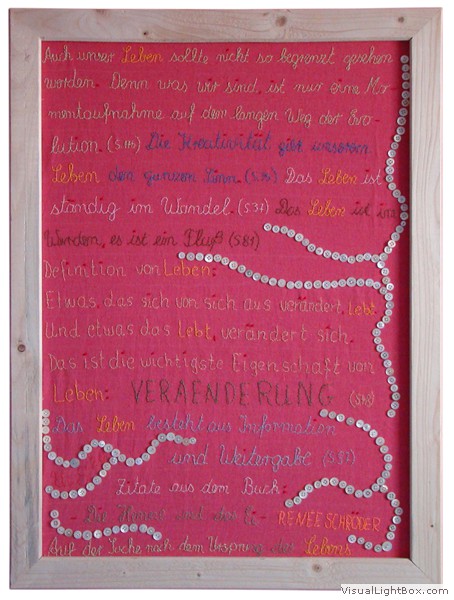 Auch unser Leben sollte nicht so begrenzt gesehen
werden. Denn was wir sind, ist nur eine Mo-
mentaufnahme auf dem langen Weg der Evo-
lution. Die Kreativität gibt unserem
Leben den ganzen Sinn. Das Leben ist
ständig im Wandel. (S.37) Das Leben ist im
Wandern, es ist ein Fluß (S87)
Definition von Leben:
Etwas das sich von sich aus verändert, lebt.
Und etwas das Lebt, verändert sich.
Das ist die wichtigste Eigenschaft von
Leben: VERAENDERUNG
Das Leben besteht aus Information
und Weitergabe (S.52)
Zitate aus dem Buch
Die Henne und das Ei RENEE SCHRÖDER
Auf der Suche nach dem Ursprung des Lebens
VisualLightBox.com